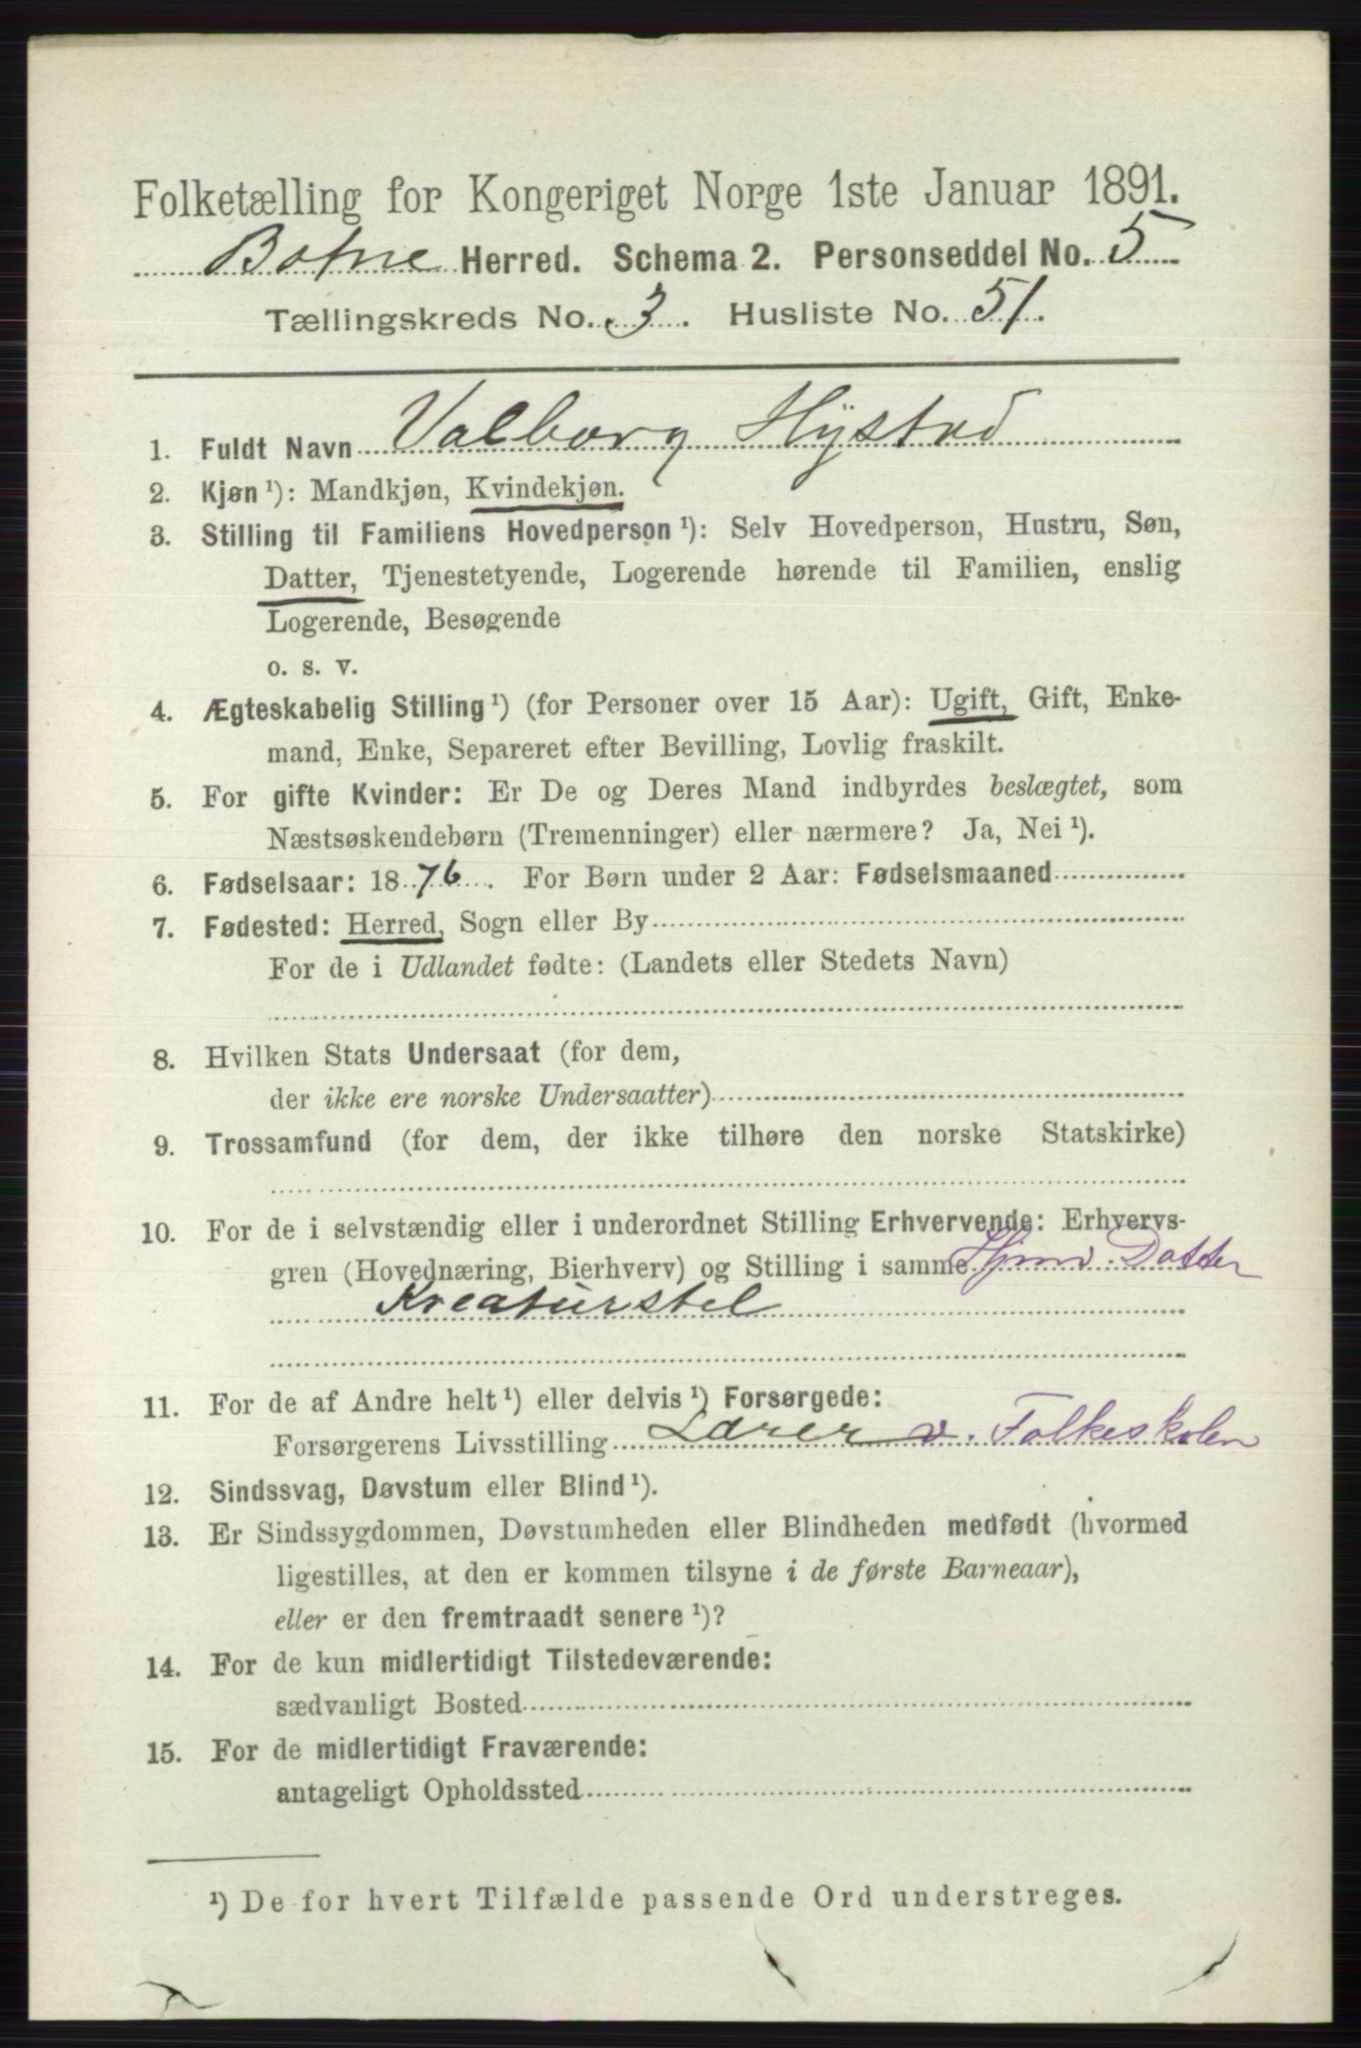 Folketælling for Kongeriget Norge 1ste Januar 1891.
Botne Herred. Schema 2. Personseddel No. 5
Tællingskreds No. 3. Husliste No. 51.
1. Fuldt Navn Valborg Hÿstad
2. Kjøn ¹): Mandkjøn, Kvindekjøn.
3. Stilling til Familiens Hovedperson ¹): Selv Hovedperson, Hustru, Søn,
Datter, Tjenestetyende, Logerende hørende til Familien, enslig
Logerende, Besøgende
o. s. v.
4. Ægteskabelig Stilling ¹) (for Personer over 15 Aar): Ugift, Gift, Enke-
mand, Enke, Separeret efter Bevilling, Lovlig fraskilt.
5. For gifte Kvinder: Er De og Deres Mand indbyrdes beslægtet, som
Næstsøskendebørn (Tremenninger) eller nærmere? Ja, Nei ¹).
6. Fødselsaar: 1876. For Børn under 2 Aar: Fødselsmaaned
7. Fødested: Herred, Sogn eller By
For de i Udlandet fødte: (Landets eller Stedets Navn)
8. Hvilken Stats Undersaat (for dem,
der ikke ere norske Undersaatter)
9. Trossamfund (for dem, der ikke tilhøre den norske Statskirke)
10. For de i selvstændig eller i underordnet Stilling Erhvervende: Erhvervs-
gren (Hovednæring, Bierhverv) og Stilling i samme Hjmv. Datter
Kreaturstel
11. For de af Andre helt ¹) eller delvis ¹) Forsørgede:
Forsørgerens Livsstilling Lærer v. Folkeskolen
12. Sindssvag, Døvstum eller Blind ¹).
13. Er Sindssygdommen, Døvstumheden eller Blindheden medfødt (hvormed
ligestilles, at den er kommen tilsyne i de første Barneaar),
eller er den fremtraadt senere ¹)?
14. For de kun midlertidigt Tilstedeværende:
sædvanligt Bosted
15. For de midlertidigt Fraværende:
antageligt Opholdssted
¹) De for hvert Tilfælde passende Ord understreges.